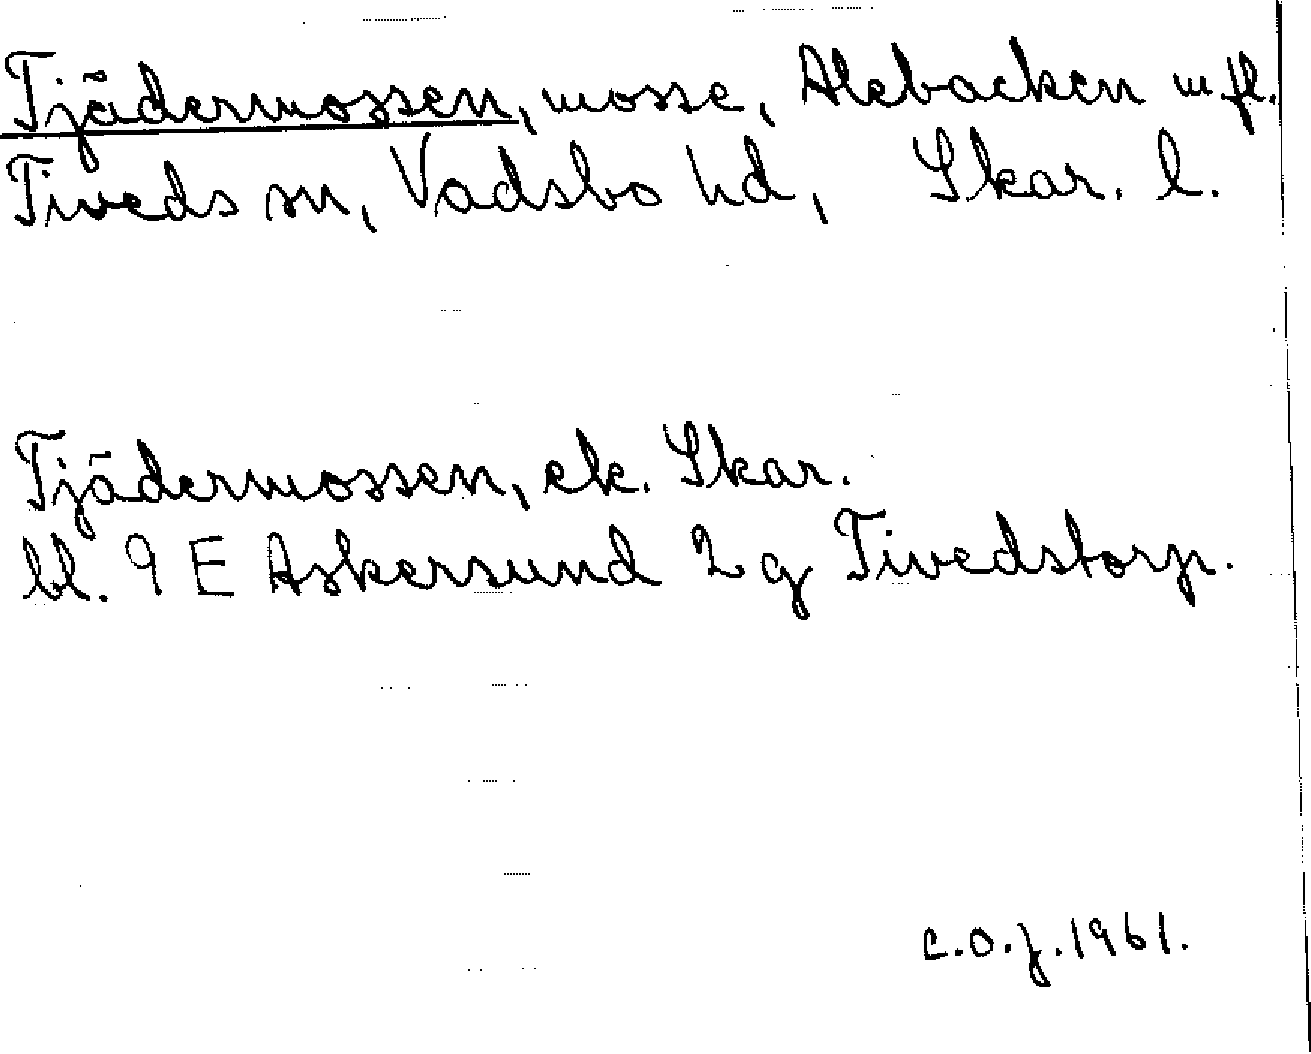 Tjädermossen, mosse, Alebacken m.fl.
Tiveds sn, Vadsbo hd, Skar. l.
Tjädermossen, ek. Skar.
bl. 9 E Askersund 2 g Tivedstorp.
C.O.f. 1961.